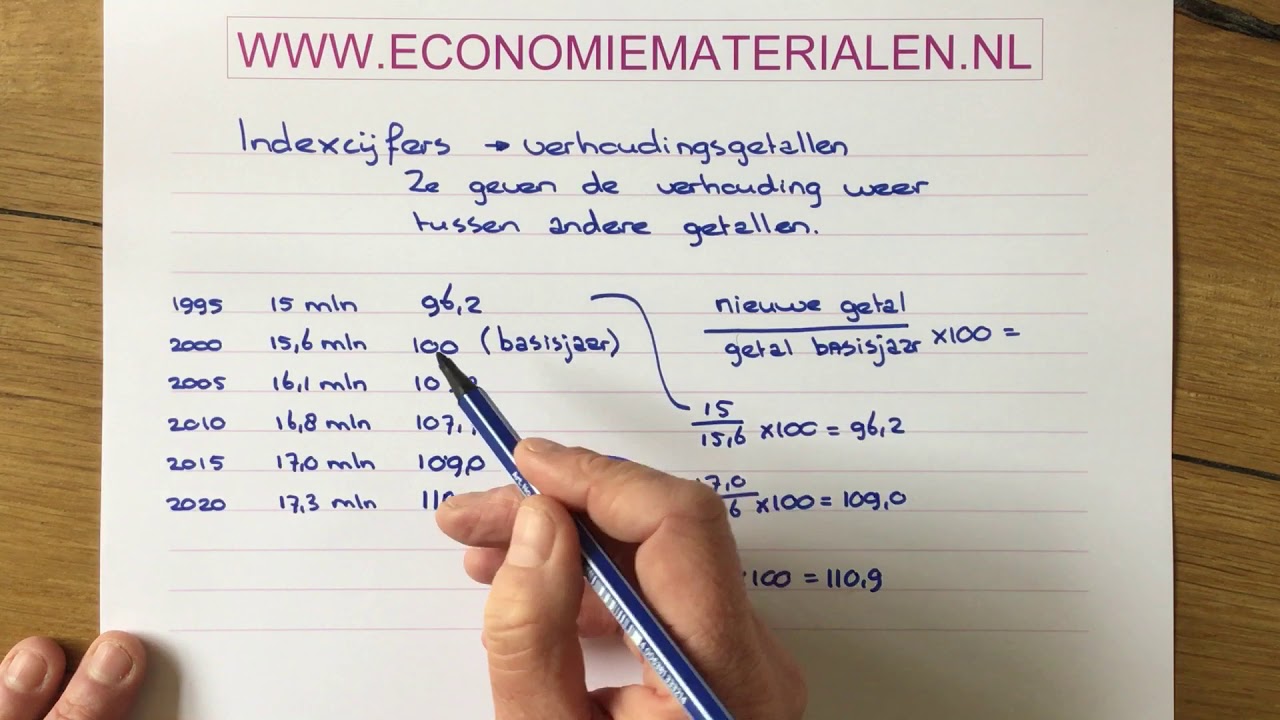 WWW.ECONOMIEMATERIALEN.NL
Indexcijfers → verhoudingsgetallen
Ze geven de verhouding weer
tussen andere getallen.
1995 15 mln 96,2
2000 15,6 mln 100 (basisjaar)
2005 16,1 mln
2010 16,8 mln 107,
2015 17,0 mln 109,0
2020 17,3 mln
nieuwe getal
getal basisjaar ×100 =
15
15,6 ×100 = 96,2
17,0
6 ×100 = 109,0
×100 = 110,9